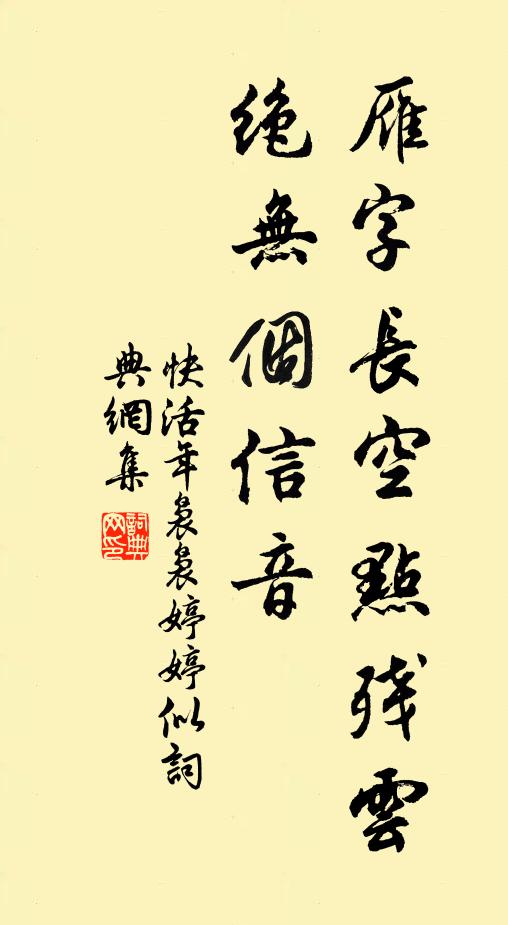 雁字長空點残雲
絶無個信音
快活年裊裊婷婷似詞
典網集
詞典
网印